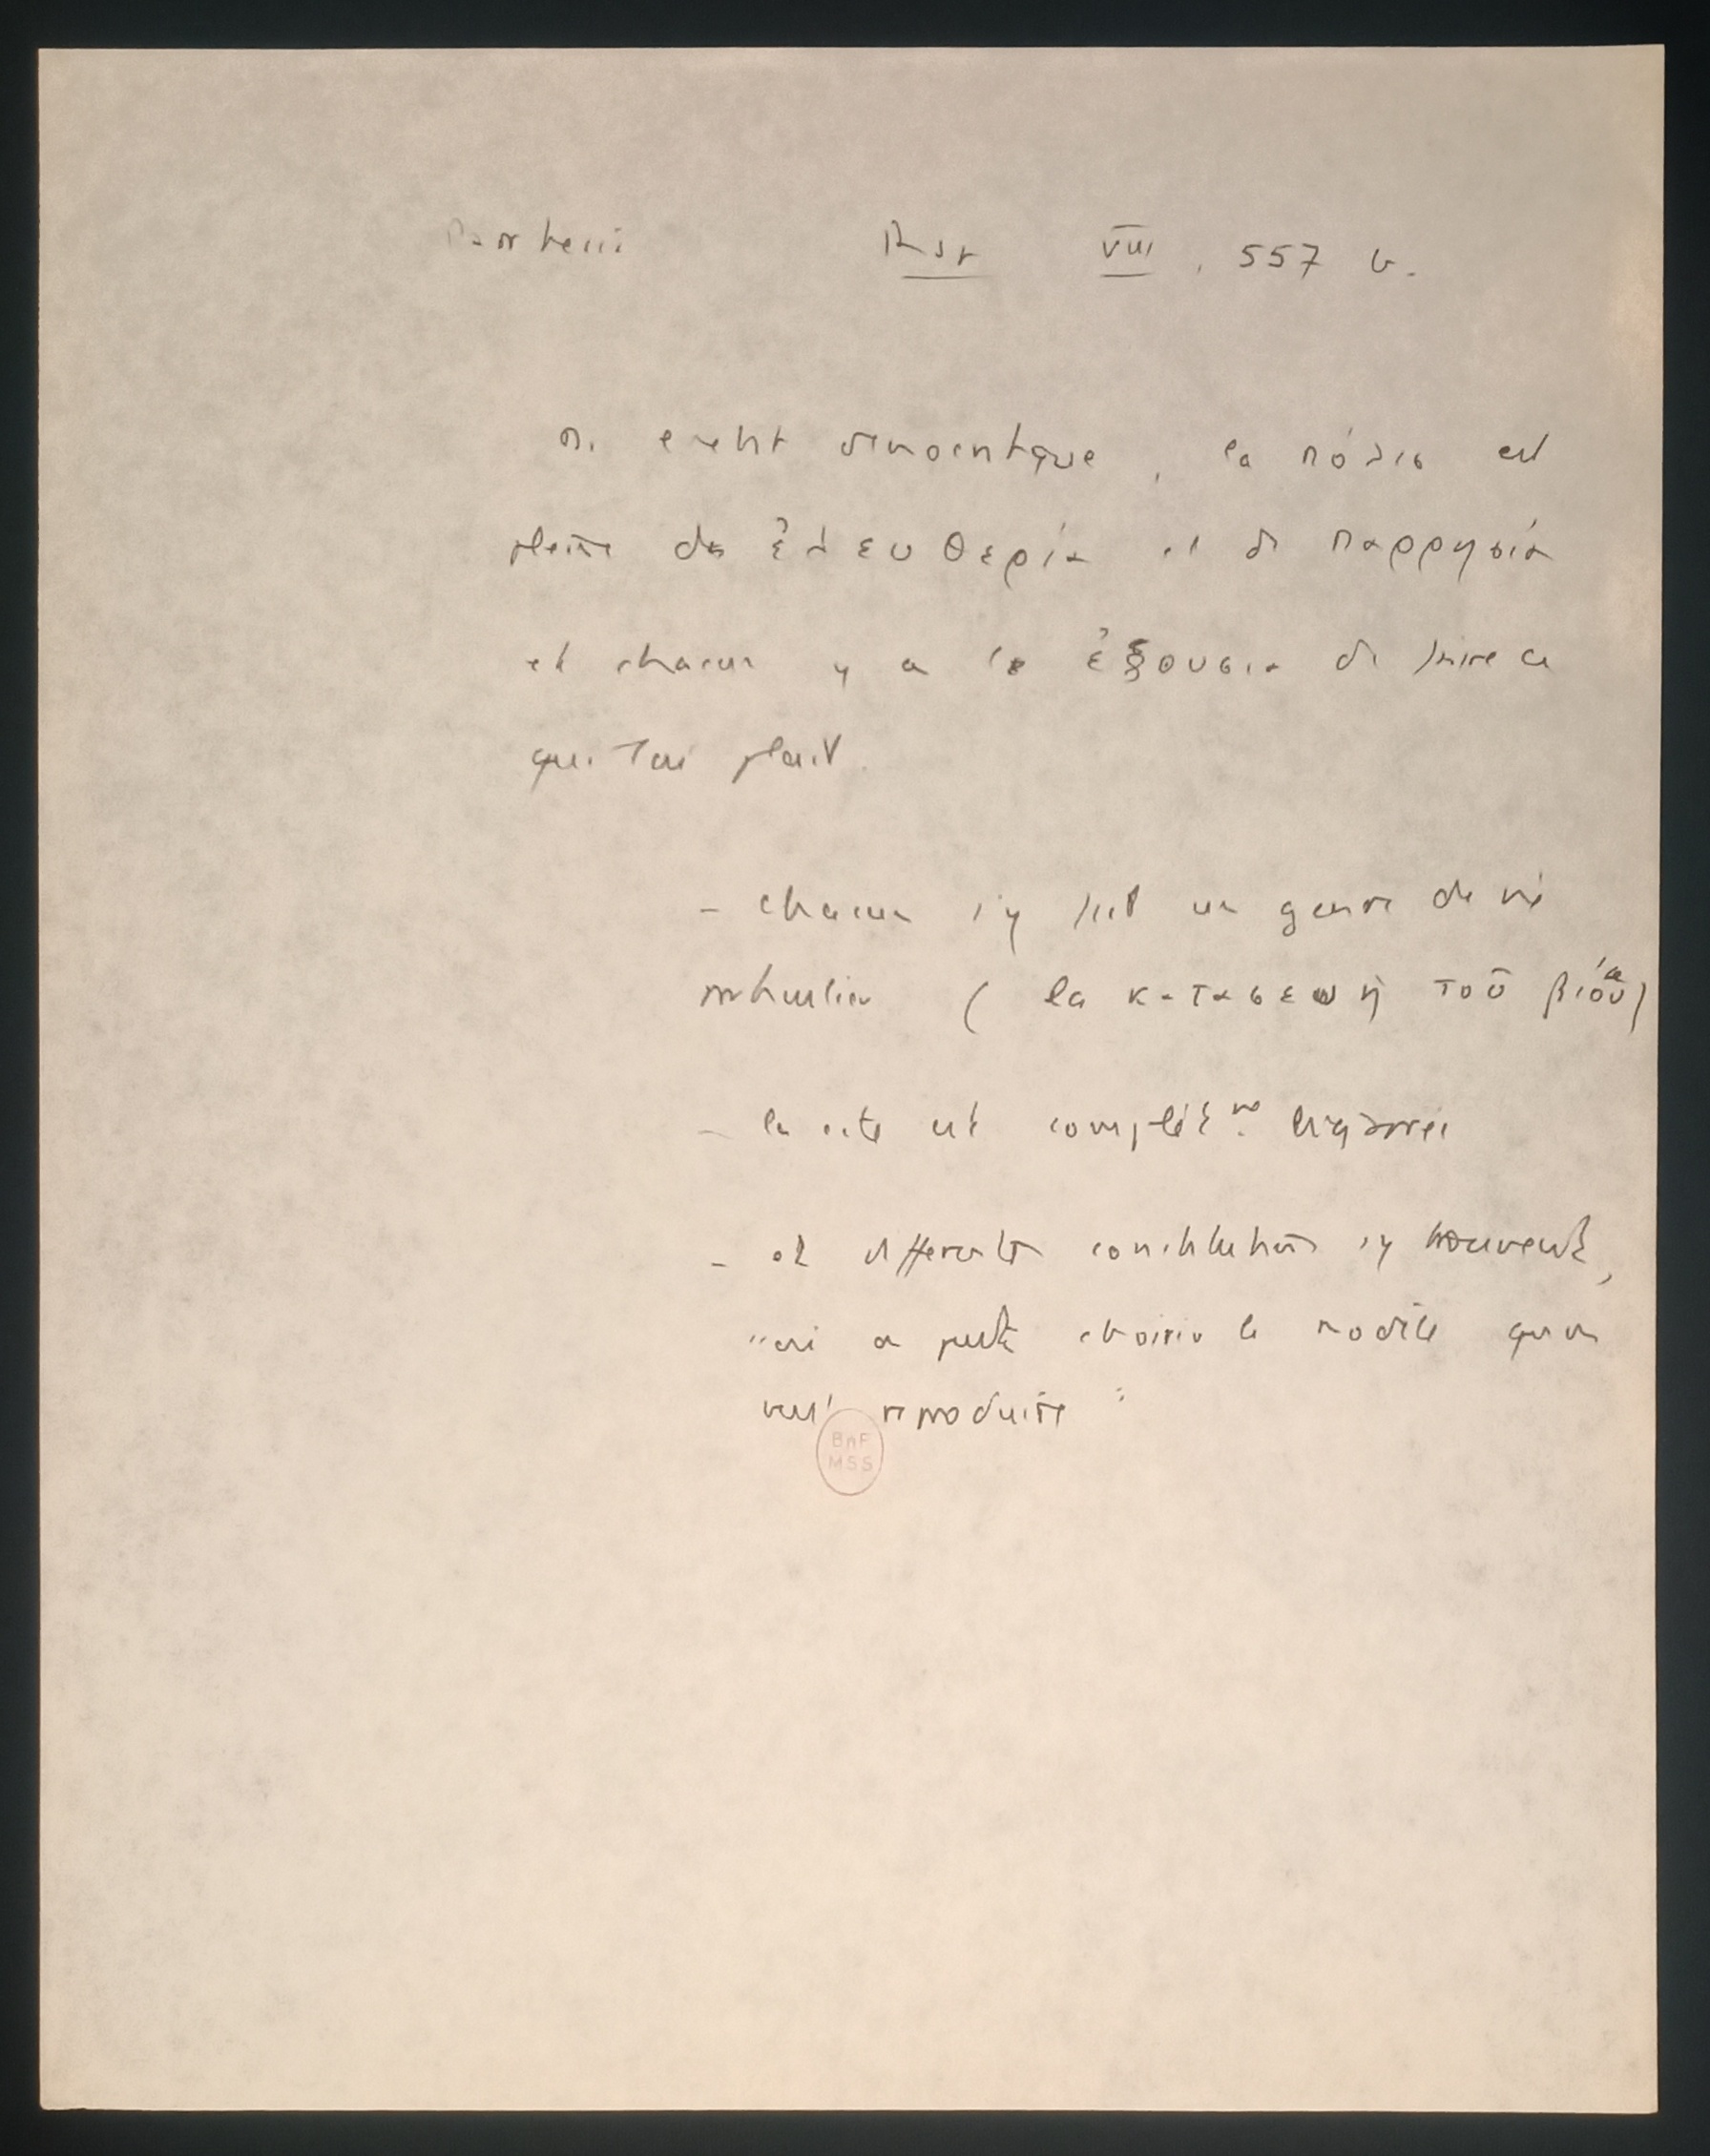 Rep VIII, 557 b.
démocratique, la πόλις est
pleine de ἐλευθερία et de παρρησία
et chacun y a la ἐξουσία de faire ce
qui lui plait.
- chacun s'y fait un genre de vie
particulier ( la κατασκευὴ τοῦ βίου)
- la cité est complètt bigarrée
- et différentes constitutions s'y trouvent,
"où on peut choisir le modèle qu'on
veut reproduire"
BnF
MSS